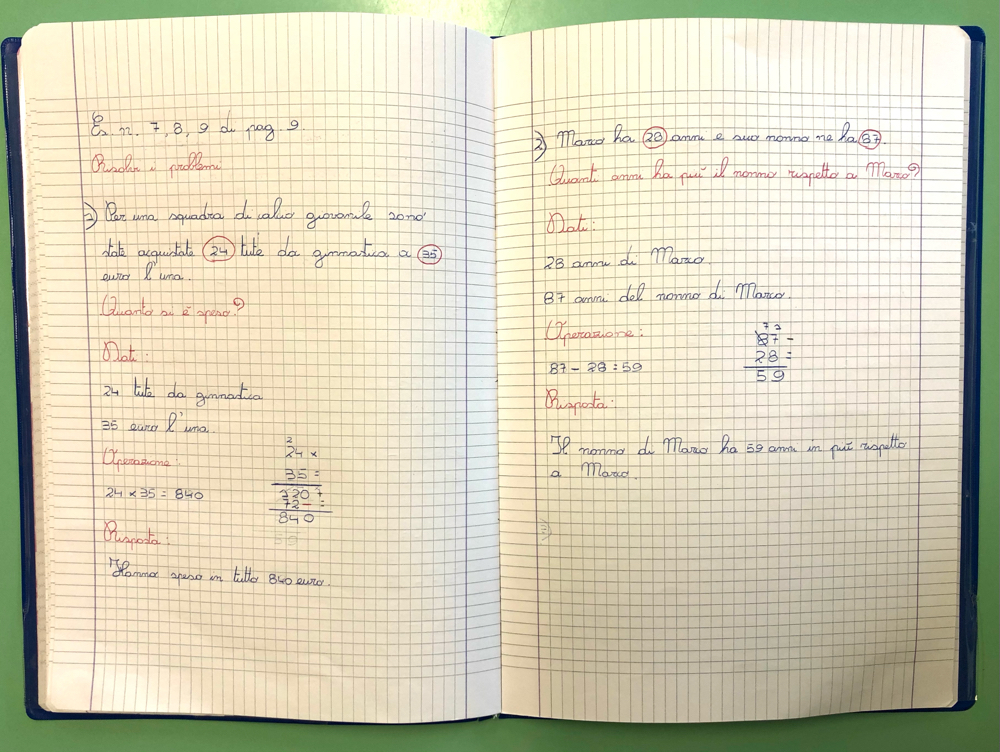 Es. n. 7, 8, 9 di pag. 9.
Risolvi i problemi
1) Per una squadra di calcio giovanile sono
state acquistate 24 tute da ginnastica a 35
euro l'una.
Quanto si è speso?
Dati:
24 tute da ginnastica
35 euro l'una.
Operazione:
24 x 35 = 840
2
24 x
35 =
120 +
72 - =
840
Risposta:
Hanno speso in tutto 840 euro.
2) Marco ha 28 anni e suo nonno ne ha 87.
Quanti anni ha più il nonno rispetto a Marco?
Dati:
28 anni di Marco.
87 anni del nonno di Marco.
Operazione:
87 - 28 = 59
87 -
28 =
59
Risposta:
Il nonno di Marco ha 59 anni in più rispetto
a Marco.